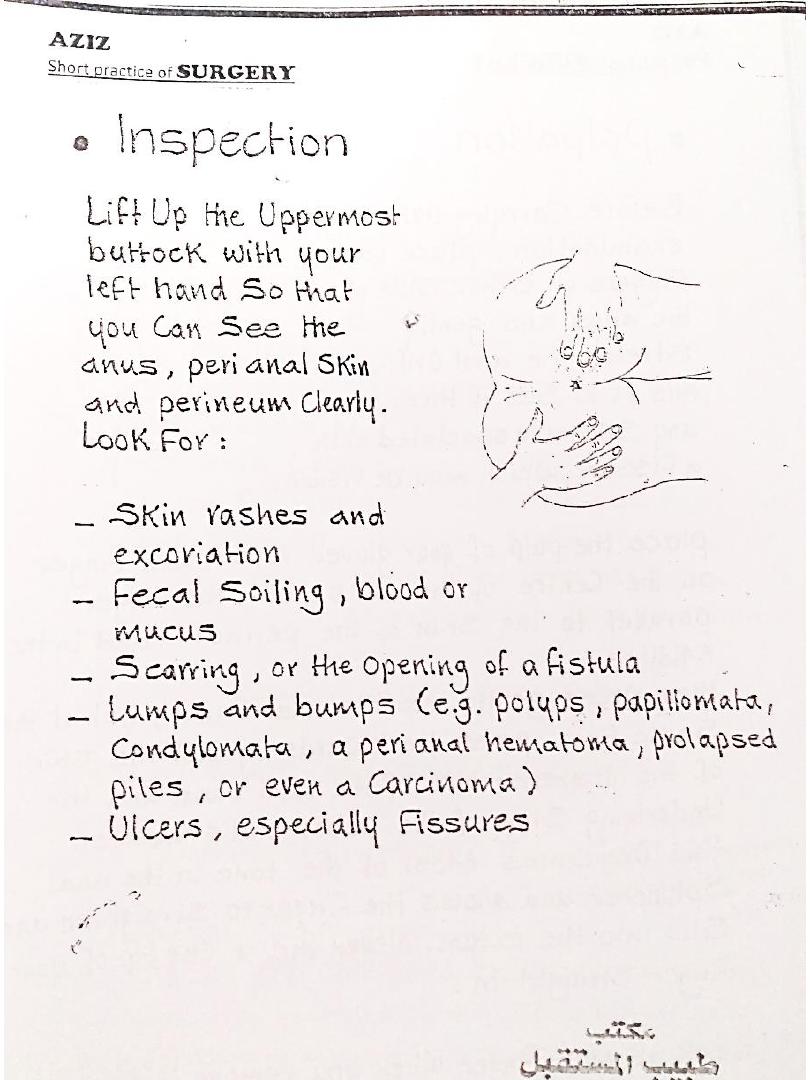 AZIZ
Short practice of SURGERY
• Inspection
Lift Up the Uppermost
buttock with your
left hand So that
you Can See the
anus, perianal Skin
and perineum Clearly.
Look For :
– Skin rashes and
excoriation
– Fecal Soiling, blood or
mucus
– Scarring, or the opening of a fistula
– Lumps and bumps (e.g. polyps, papillomata,
Condylomata, a perianal hematoma, prolapsed
piles, or even a Carcinoma)
– Ulcers, especially Fissures
مكتب
طبيب المستقبل